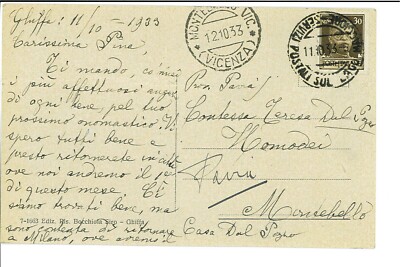 Ghiffa: 11/10 - 1933
Carissima Pina,
Ti mando, co' miei
i più affettuosi auguri
di ogni bene, pel tuo
prossimo onomastico. Vi
spero tutti bene e
presto ritornerete in città
ove noi andremo il
di questo mese. Ci
siamo trovati bene, ma
sono contenta di ritornare
a Milano, ove avremo il
7-1603 Ediz. Ris. Bocchiola Siro - Ghiffa
MONTEBELLO VIC.
12.10.33
(VICENZA)
11.10.33
POSTALI SUL
30
Contessa Teresa Dal Pozzo
Homodei
Pavia
Montebello
Casa Dal Pozzo